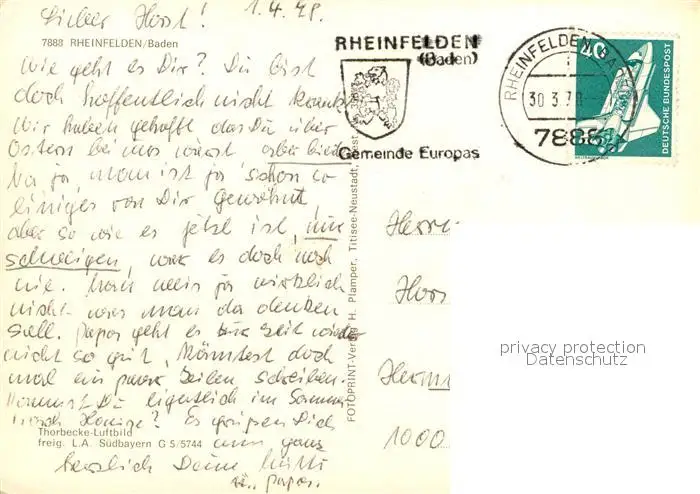 Lieber Horst! 1.4.78.
7888 RHEINFELDEN/Baden
Wie geht es Dir? Du bist
doch hoffentlich nicht krank
Wir haben gehofft, das Du über
Ostern bei uns wärst, aber
Na ja, man ist ja schon so
einiges von Dir gewöhnt,
aber so wie es jetzt ist, nur
schweigen, war es doch noch
nie. Man weis ja wirklich
nicht was man da denken
soll. Papa geht es zur Zeit wieder
nicht so gut, könntest doch
mal ein paar Zeilen schreiben.
Kommst Du eigentlich im Sommer
nach Hause? Es grüßen Dich
Thorbecke-Luftbild
freig. L.A. Südbayern G 5/5744
nun ganz
herzlich Deine Mutti
u. Papa.
FOTOPRINT-Verlag H. Plamper, Titisee-Neustadt,
RHEINFELDEN
(Baden)
Gemeinde Europas
RHEINFELDEN, BADEN
30.3.78
7888
40
DEUTSCHE BUNDESPOST
Herrn
Hors
Herm
1000
privacy protection
Datenschutz